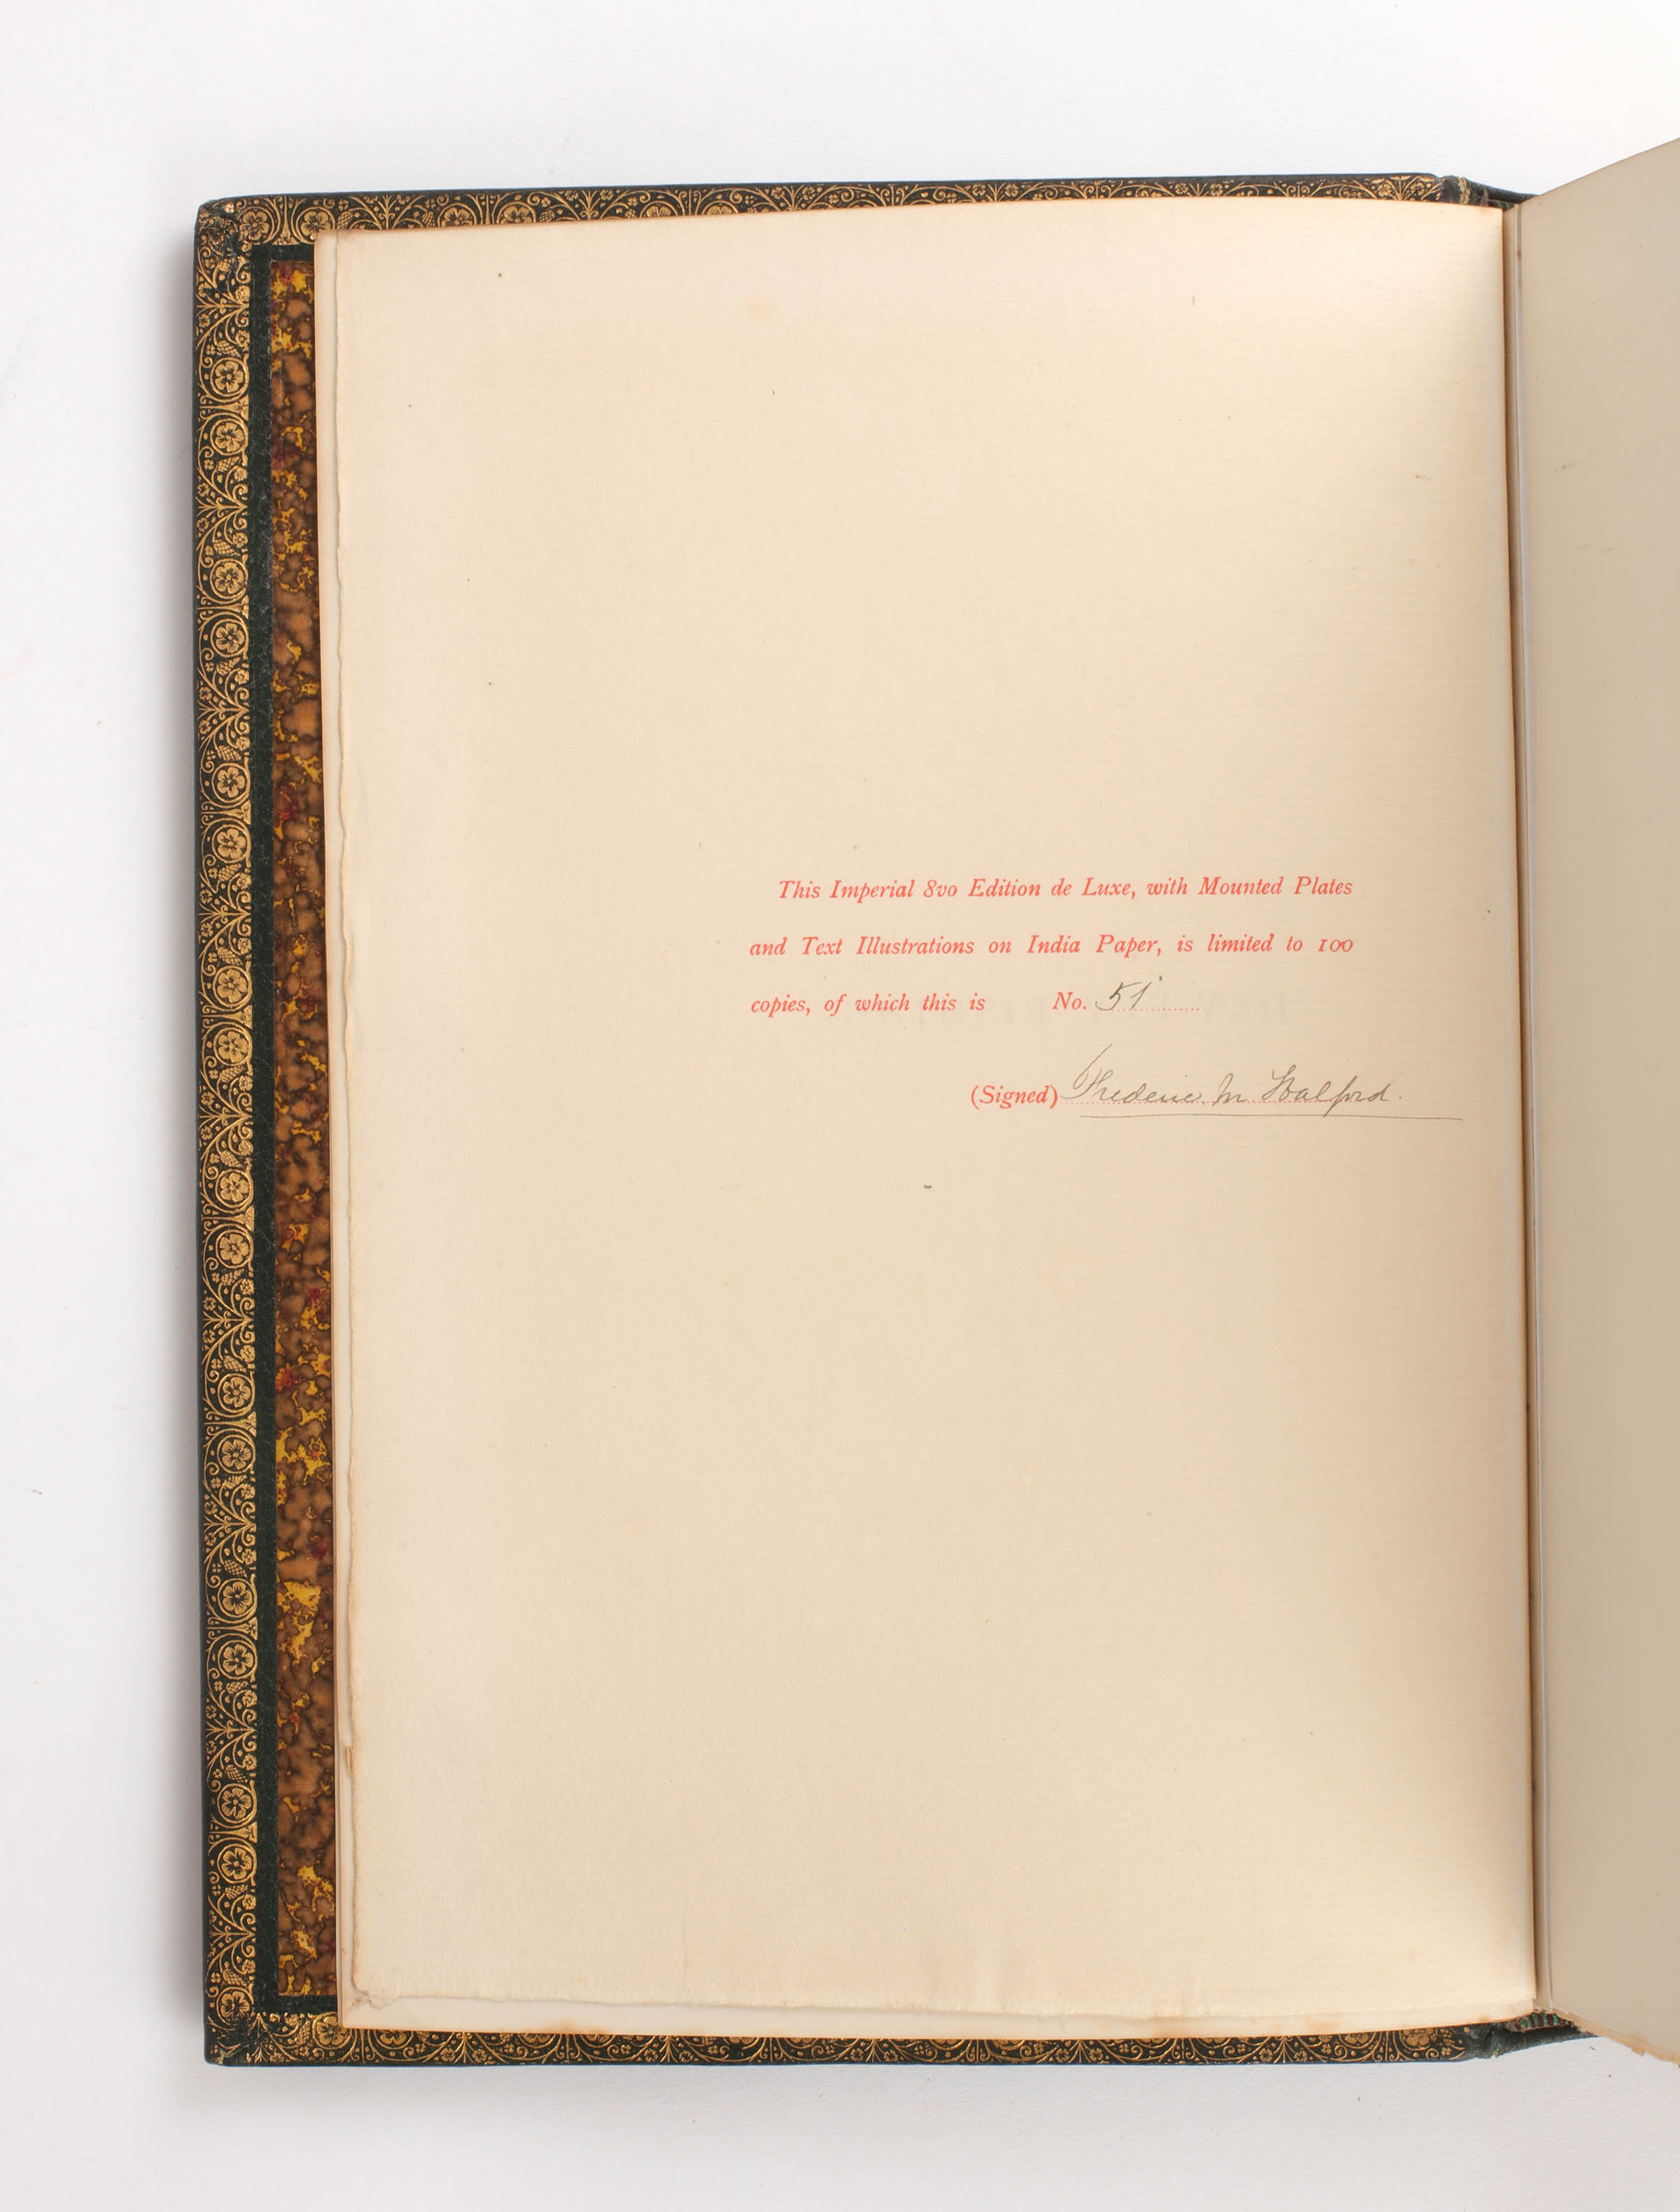 This Imperial 8vo Edition de Luxe, with Mounted Plates
and Text Illustrations on India Paper, is limited to 100
copies, of which this is No. 51
(Signed) Frederic M Halford.